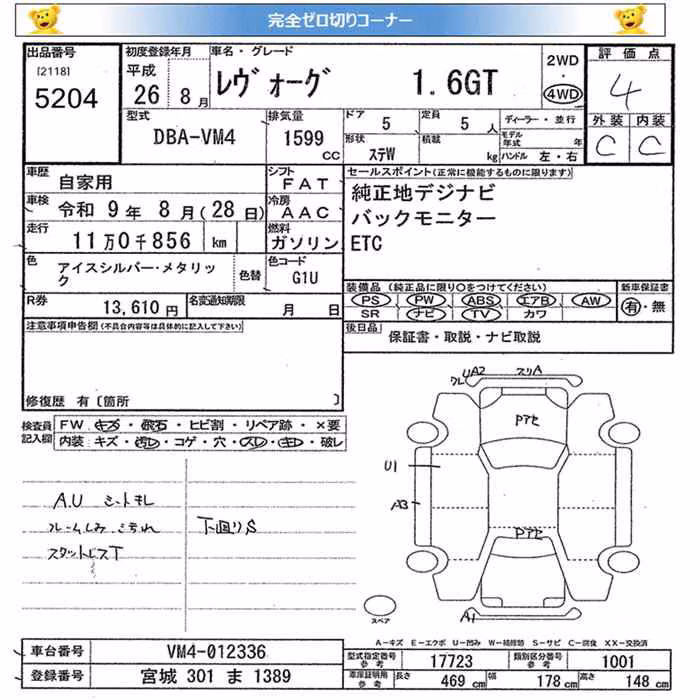 完全ゼロ切りコーナー
出品番号
[2118]
5204
初度登録年月
平成
26 8月
車名・グレード
レヴォーグ 1.6GT
2WD
・
4WD
評価点
4
外装 内装
C C
型式
DBA-VM4
排気量
1599
CC
ドア
5
定員
5人
形状
ステW
積載
kg
ディーラー・並行
モデル年式 年
ハンドル 左・右
車歴
自家用
シフト
FAT
車検
令和 9年 8月(28日)
冷房
AAC
走行
11万0千856 km
燃料
ガソリン
色
アイスシルバー・メタリック
色替
色コード
G1U
セールスポイント(正常に機能するものに限ります)
純正地デジナビ
バックモニター
ETC
R券
13,610円
名変通知期限
月 日
装備品(純正品に限り〇をつけてください)
PS PW ABS エアB AW
SR ナビ TV カワ
新車保証書
有・無
後日品
保証書・取説・ナビ取説
注意事項申告欄(不具合内容等は具体的に記入して下さい)
修復歴 有〔箇所 〕
検査員記入欄
FW. キズ・飛石・ヒビ割・リペア跡・×要
内装:キズ・汚レ・コゲ・穴・スレ・キレ・破レ
A.U シートキレ
下廻りS
スタッドレスT
UA2
スリA
Pアセ
U1
A3
Pアセ
A1
スペア
A-キズ E-エクボ U-凹み W-補修跡 S-サビ C-腐食 XX-交換済
車台番号
VM4-012336
登録番号
宮城 301 ま 1389
型式指定番号
参考
17723
類別区分番号
参考
1001
車庫証明用
参考
長さ 469 cm 幅 178 cm 高さ 148 cm